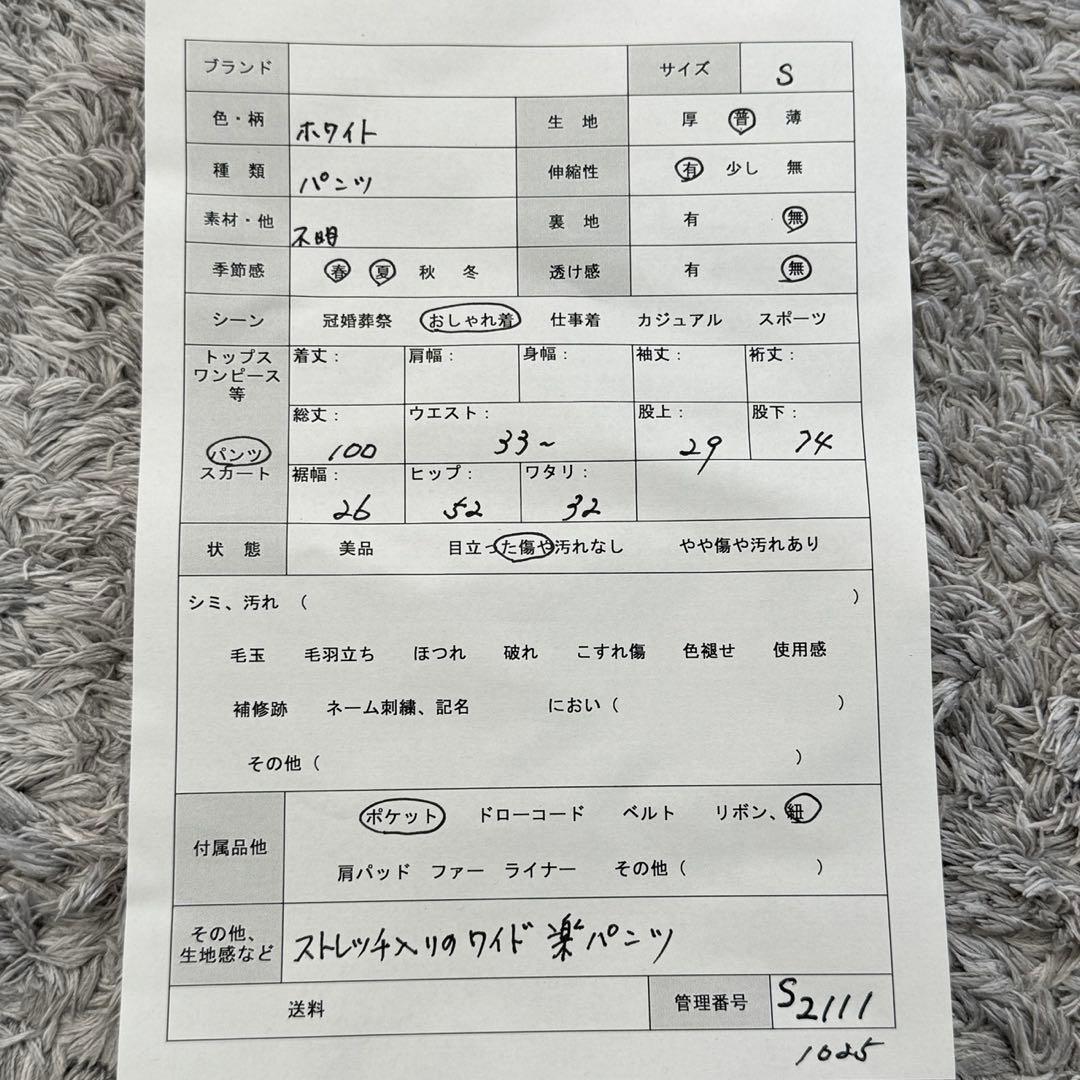 ブランド サイズ S
色・柄 ホワイト 生 地 厚 普 薄
種 類 パンツ 伸縮性 有 少し 無
素材・他 不明 裏 地 有 無
季節感 春 夏 秋 冬 透け感 有 無
シーン 冠婚葬祭 おしゃれ着 仕事着 カジュアル スポーツ
トップス
ワンピース
等
着丈： 肩幅： 身幅： 袖丈： 裄丈：
パンツ
スカート
総丈： ウエスト： 股上： 股下：
100 33~ 29 74
裾幅： ヒップ： ワタリ：
26 52 32
状 態 美品 目立った傷や汚れなし やや傷や汚れあり
シミ、汚れ （ ）
毛玉 毛羽立ち ほつれ 破れ こすれ傷 色褪せ 使用感
補修跡 ネーム刺繍、記名 におい（ ）
その他（ ）
付属品他
ポケット ドローコード ベルト リボン、紐
肩パッド ファー ライナー その他（ ）
その他、
生地感など
ストレッチ入りのワイド 楽パンツ
送料 管理番号 S2111
1025